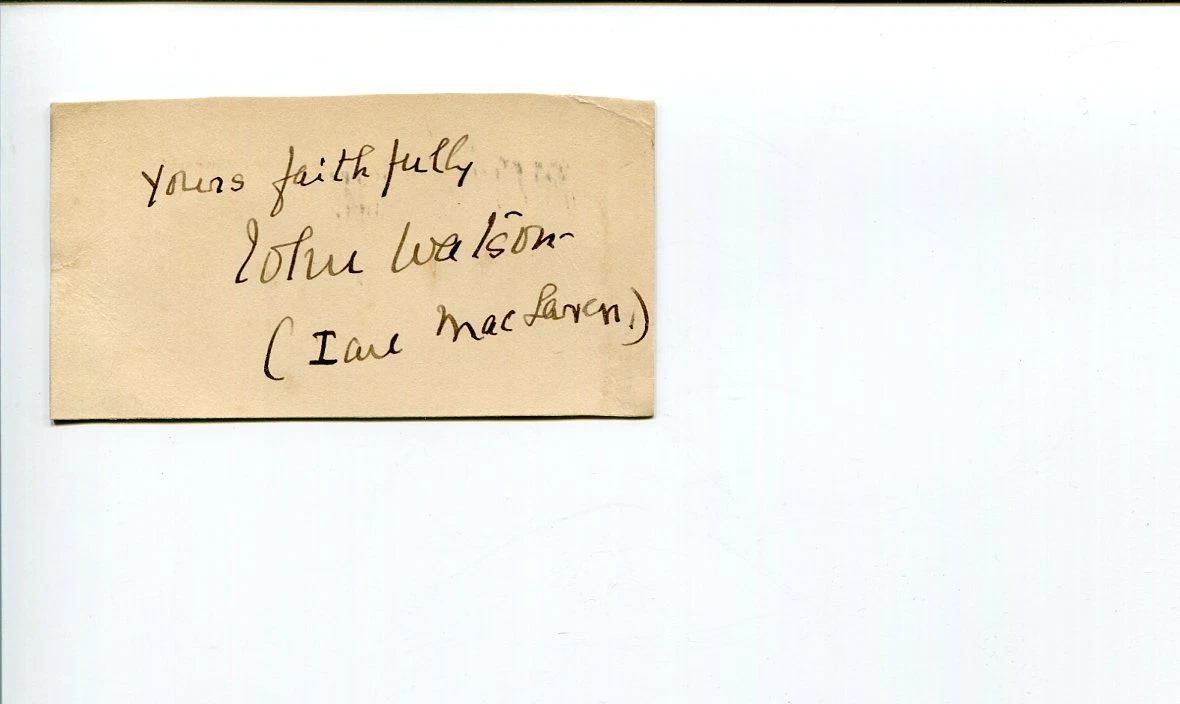 Yours faithfully
John Watson
(Ian MacLaren.)